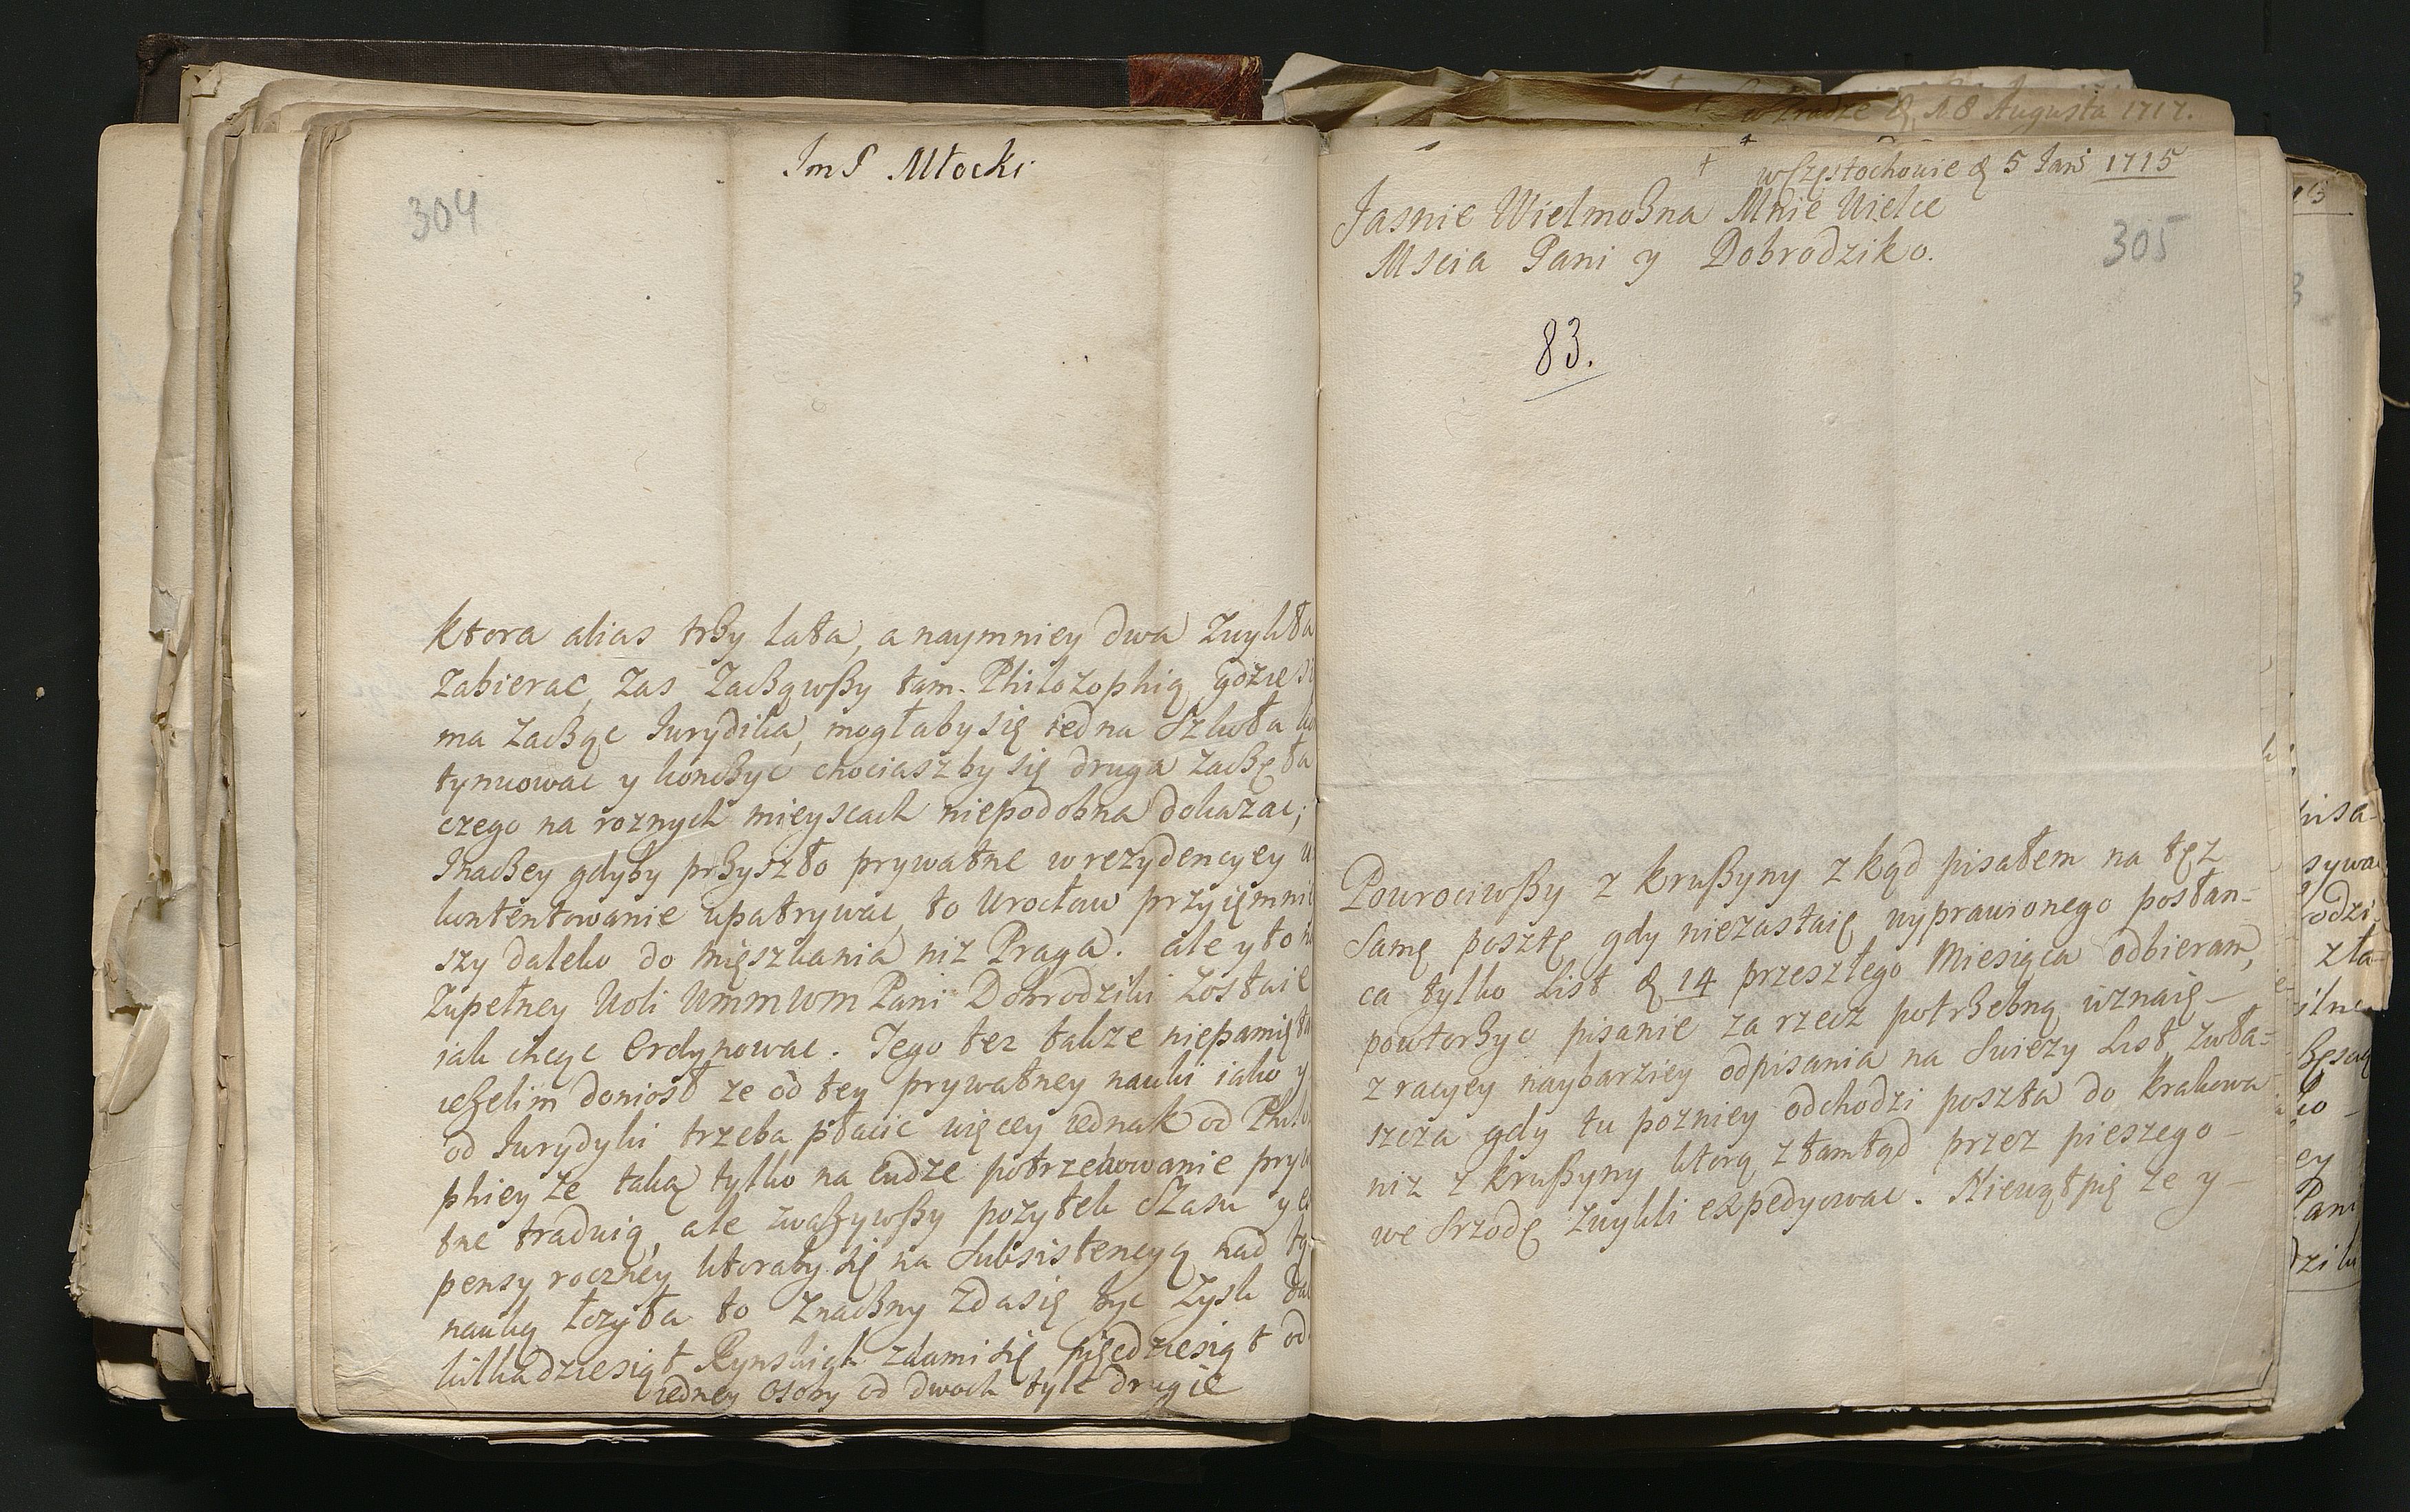 Im P Młocki
304
ktora alias trzy lata, a naymniey dwa zwykła
zabierac, zas zacząwszy tam Philozophią gdzie
ma zacząc Jurydika, mogłaby się iedna Szkoła
tynuowac y konczyc chociaszby się druga zaczęta
czego na roznych mieyscach niepodobna dokazac;
Inaczey gdyby przyszło prywatne w rezydencyey
kontentowanie upatrywac, to Wrocław przyięmni
szy daleko do mięszkania niz Praga. ale y to
zupełney Woli WmmWm Pani Dobrodziki zostaie
iak chcąc Ordynowac. Tego tez takze niepamięta
ieżelim doniosł ze od tey prywatney nauki iako y
od Jurydyki trzeba płacic więcey iednak od Philo
phiey ze taką tylko na cudze potrzebowanie pryw
tne traduią, ale zwazywszy pozytek Szasu y
pensy roczney ktoraby się na Subsistencyą nad
nauką łozyła to znaczny zda się byc zysk
kilkadziesiąt Rynskich zdami się pięcdziesiąt od
iedney osoby od dwoch tyle drugie
w Radze d 18 Augusta 1717.
w Częstochowie d 5 Jan 1715
Jasnie Wielmożna Mnie Wielce
Mscia Pani y Dobrodziko.
305
83.
Powrociwszy z Kruszyny zkąd pisałem na tęz
Samę posztę gdy niezastaię wyprawionego posłan-
ca tylko List d 14 przeszłego Miesiąca odbieram,
powtorzyc pisanie za rzecz potrzebną uznaię
z racyey naybarziey odpisania na Swiezy List zwła-
szcza gdy tu pozniey odchodzi poszta do Krakowa
niz z Kruszyny ktorą ztamtąd przez pieszego
we Srzodę zwykli expedyowac. Niewątpię ze y